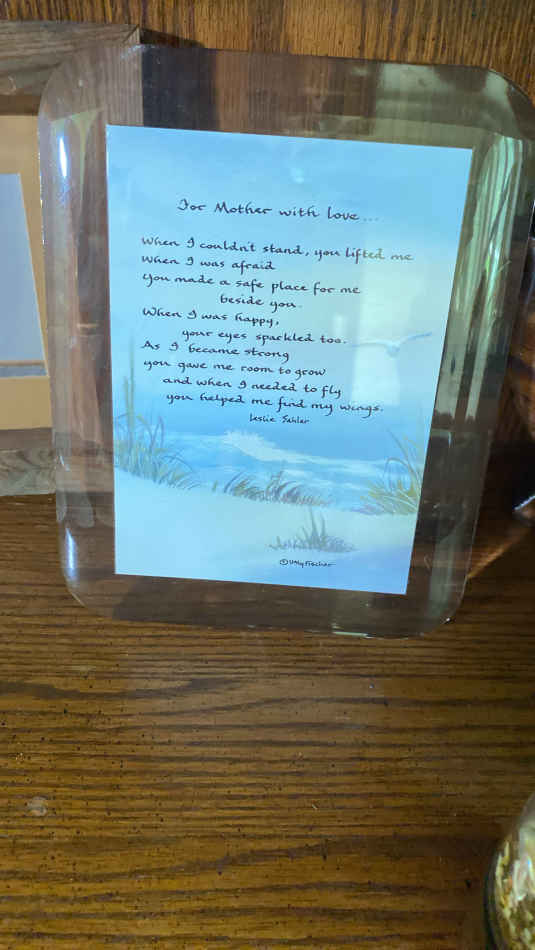 For Mother with love...
When I couldn't stand, you lifted me
When I was afraid
you made a safe place for me
beside you.
When I was happy,
your eyes sparkled too.
As I became strong
you gave me room to grow
and when I needed to fly
you helped me find my wings.
Leslie Sahler
©